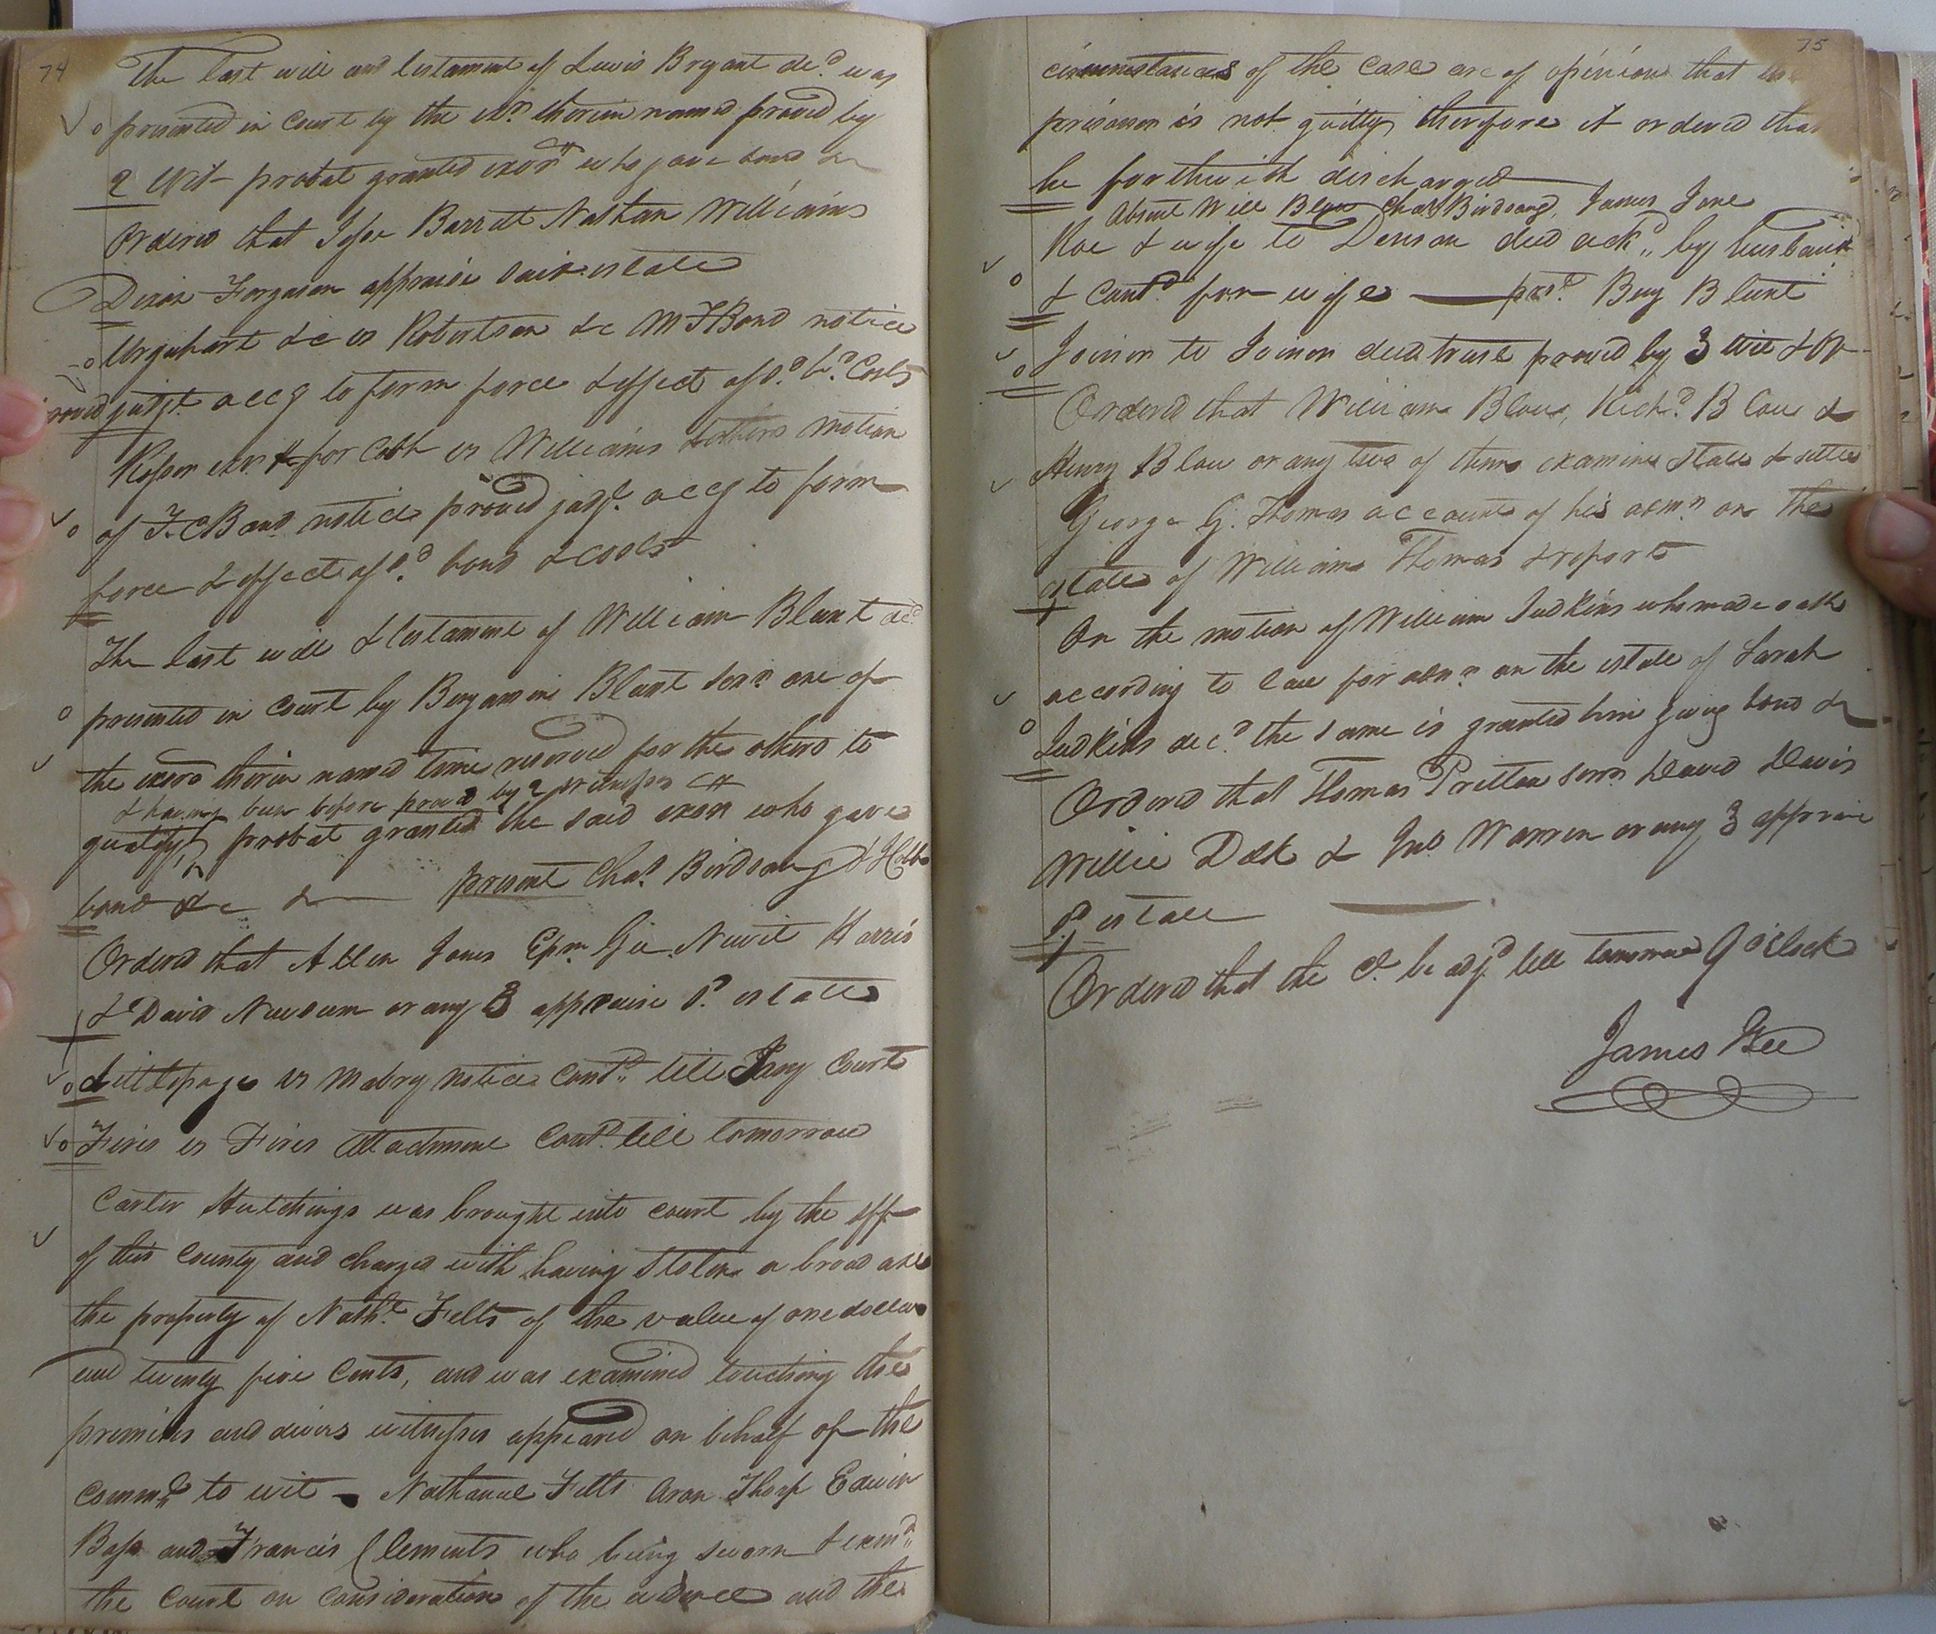 74
The last will and testament of Lewis Bryant decd. was
presented in Court by the exr. therein named proved by
2 Wit probat granted exors who gave bond &c
Ordered that Jesse Barrett Nathan Williams
Dixon Forgason appraise said estate
Urquhart &c vs Robertson &c M F Bond notice
proved judgt. accg to form force & effect of sd. bd. Costs
for Cobb vs Williams & others motion
of F. C Bond notice proved judgt. accg to form
force & effect of sd. bond & costs
The last will & testament of William Blunt decd
presented in court by Benjamin Blunt senr. one of
the exors therein named time reserved for the others to
& having been before proved by 2 witnesses
qualify, probat granted the said exor who gave
bond &c present Chas. Birdsong &
Ordered that Allen Jones Epm. Gee Newit Harris
& David Newsum or any 3 appraise sd. estate
Littlepage vs Mabry notice contd. till Jany Court
Fires vs Fires Attachment Contd. till tomorrow
Carter Hutchings was brought into court by the sff
of this County and charged with having stolen a broad axe
the property of Nathl. Felts of the value of one dollar
and twenty five Cents, and was examined touching the
premises and divers witnesses appeared on behalf of the
Commth. to wit Nathaniel Felts Aron Thorp Edwin
Bass and Francis Clements who being sworn & exmd.
the Court on consideration of the evidence and the
75
circumstances of the case are of opinion that the
prisoner is not guilty therefore it ordered that
be forthwith discharged
Absent Will Blow Chas Birdsong, James Jone
Roe & wife to Denson deed ackd. by husband
& Contd. for wife prst. Benj Blunt
Joiner to Joiner deed trust proved by 3 wit & Or
Ordered that William Blow, Richd. Blow &
Henry Blow or any two of them examine state & settle
George G. Thomas account of his admn. on the
estate of William Thomas & report
On the motion of William Judkins who made oath
according to law for admn. on the estate of Sarah
Judkins decd. the same is granted him giving bond &c
Ordered that Thomas Pretlow senr. David Davis
Willie Delk & Jno. Warren or any 3 appraise
sd. estate
Ordered that the Ct. be adjd. till tomorrow 9 oClock
James Gee